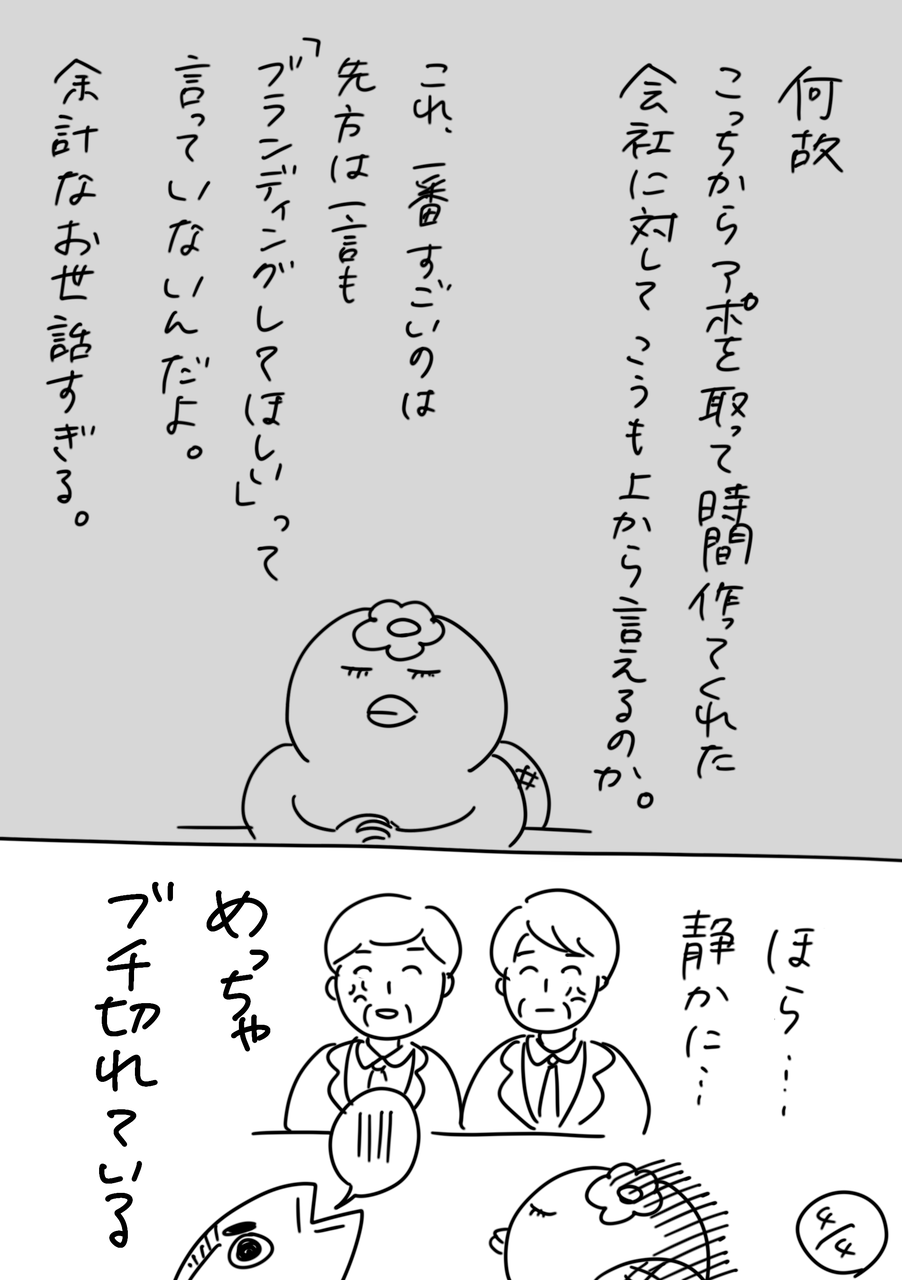 何故
こっちからアポを取って時間作ってくれた
会社に対してこうも上から言えるのか。
これ、一番すごいのは
先方は一言も
「ブランディングしてほしい」って
言っていないんだよ。
余計なお世話すぎる。
ほら…
静かに…
めっちゃ
ブチ切れている
4/4